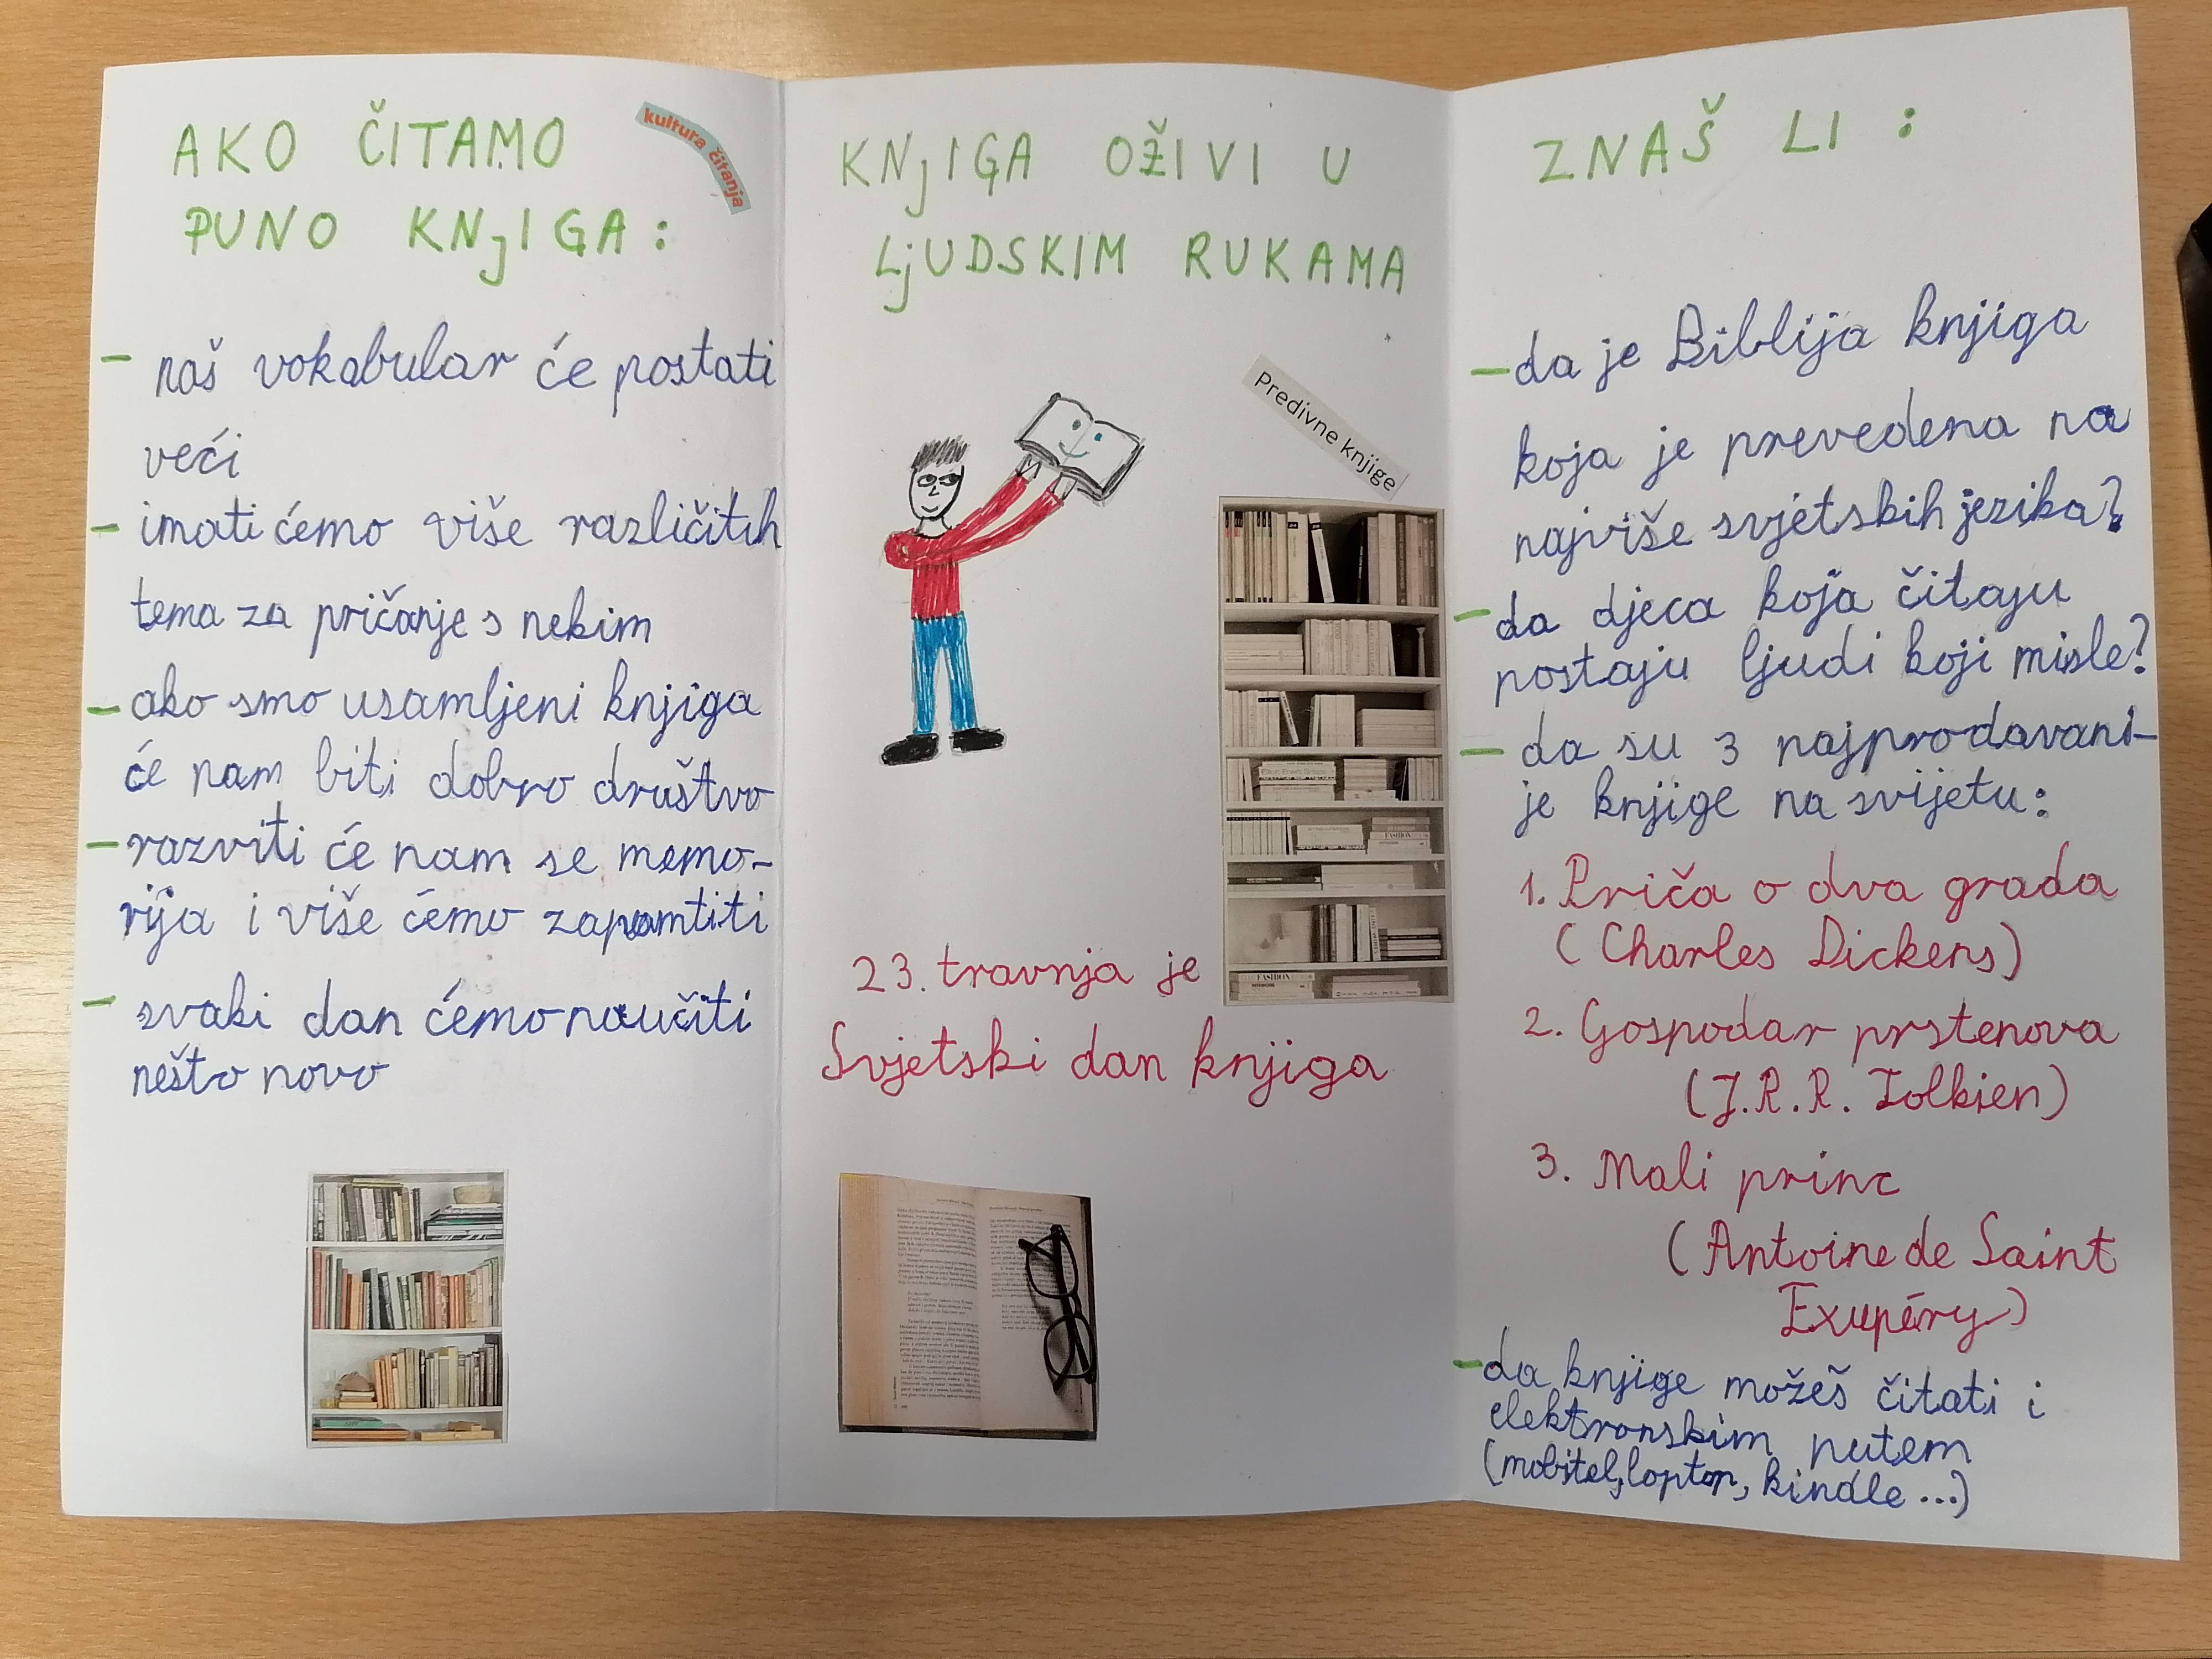 AKO ČITAMO
PUNO KNjIGA:
kultura čitanja
- naš vokabular će postati
veći
- imati ćemo više različitih
tema za pričanje s nekim
- ako smo usamljeni knjiga
će nam biti dobro društvo
- razviti će nam se memo-
rija i više ćemo zapamtiti
- svaki dan ćemo naučiti
nešto novo
KNjIGA OŽIVI U
LjUDSKIM RUKAMA
Predivne knjige
FASHION
FASHION
23. travnja je
Svjetski dan knjiga
ZNAŠ LI :
- da je Biblija knjiga
koja je prevedena na
najviše svjetskih jezika?
- da djeca koja čitaju
postaju ljudi koji misle?
- da su 3 najprodavani-
je knjige na svijetu:
1. Priča o dva grada
(Charles Dickens)
2. Gospodar prstenova
(J.R.R. Tolkien)
3. Mali princ
(Antoine de Saint
Exupéry)
- da knjige možeš čitati i
elektronskim putem
(mobitel, laptop, kindle...)